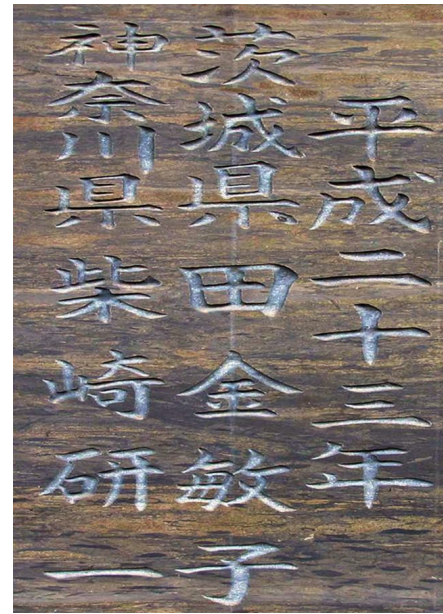 平成二十三年
茨城県田金敏子
神奈川県柴崎研一